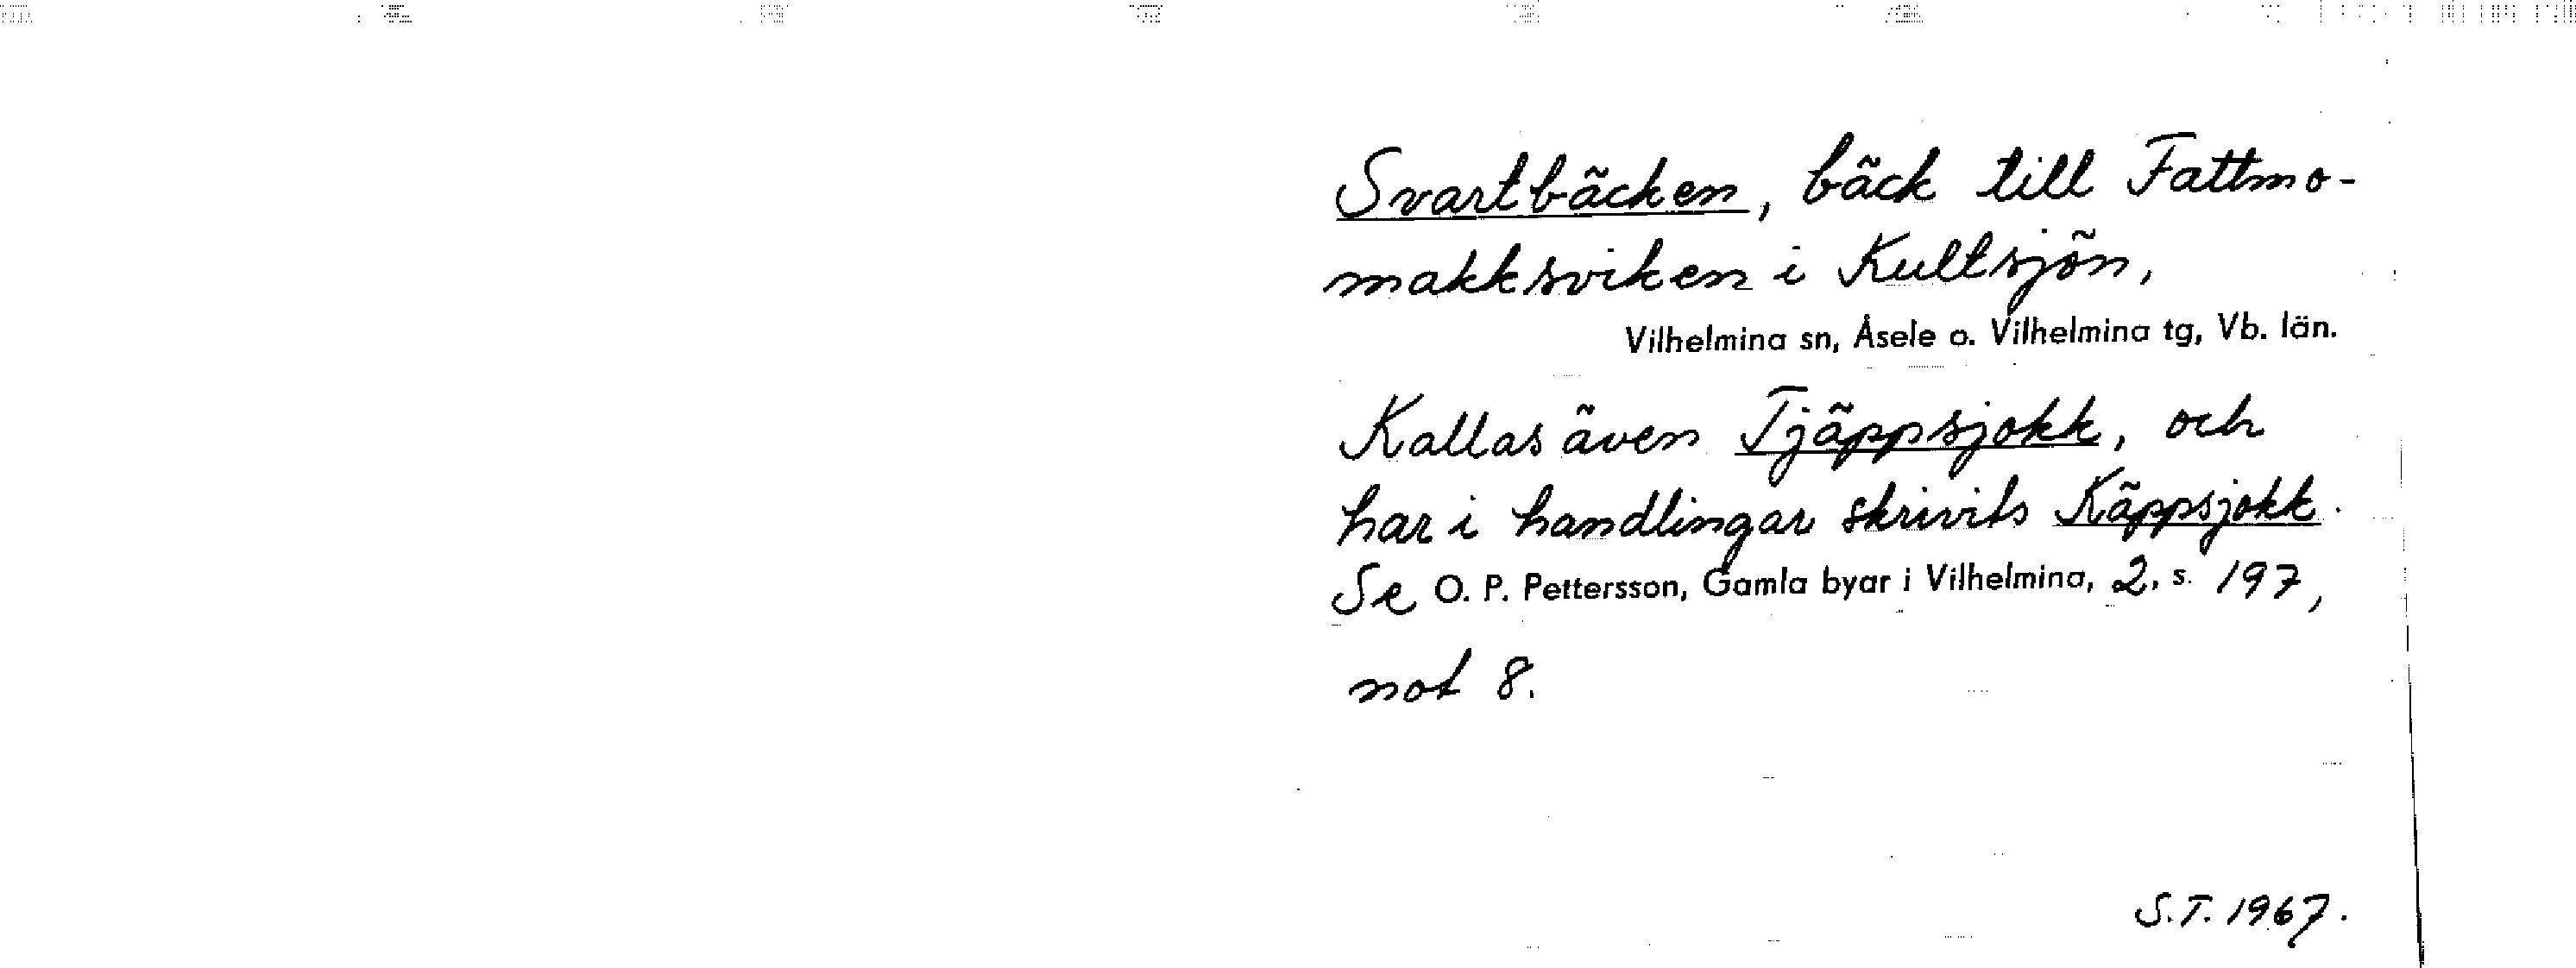 Svartbäcken, bäck till Fattmo-
makksviken i Kultsjön,
Vilhelmina sn, Åsele o. Vilhelmina tg, Vb. län.
Kallas även Tjäppsjokk, och
har i handlingar skrivits Käppsjokk.
Se O. P. Pettersson, Gamla byar i Vilhelmina, 2, s. 197,
not 8.
S.T. 1967.